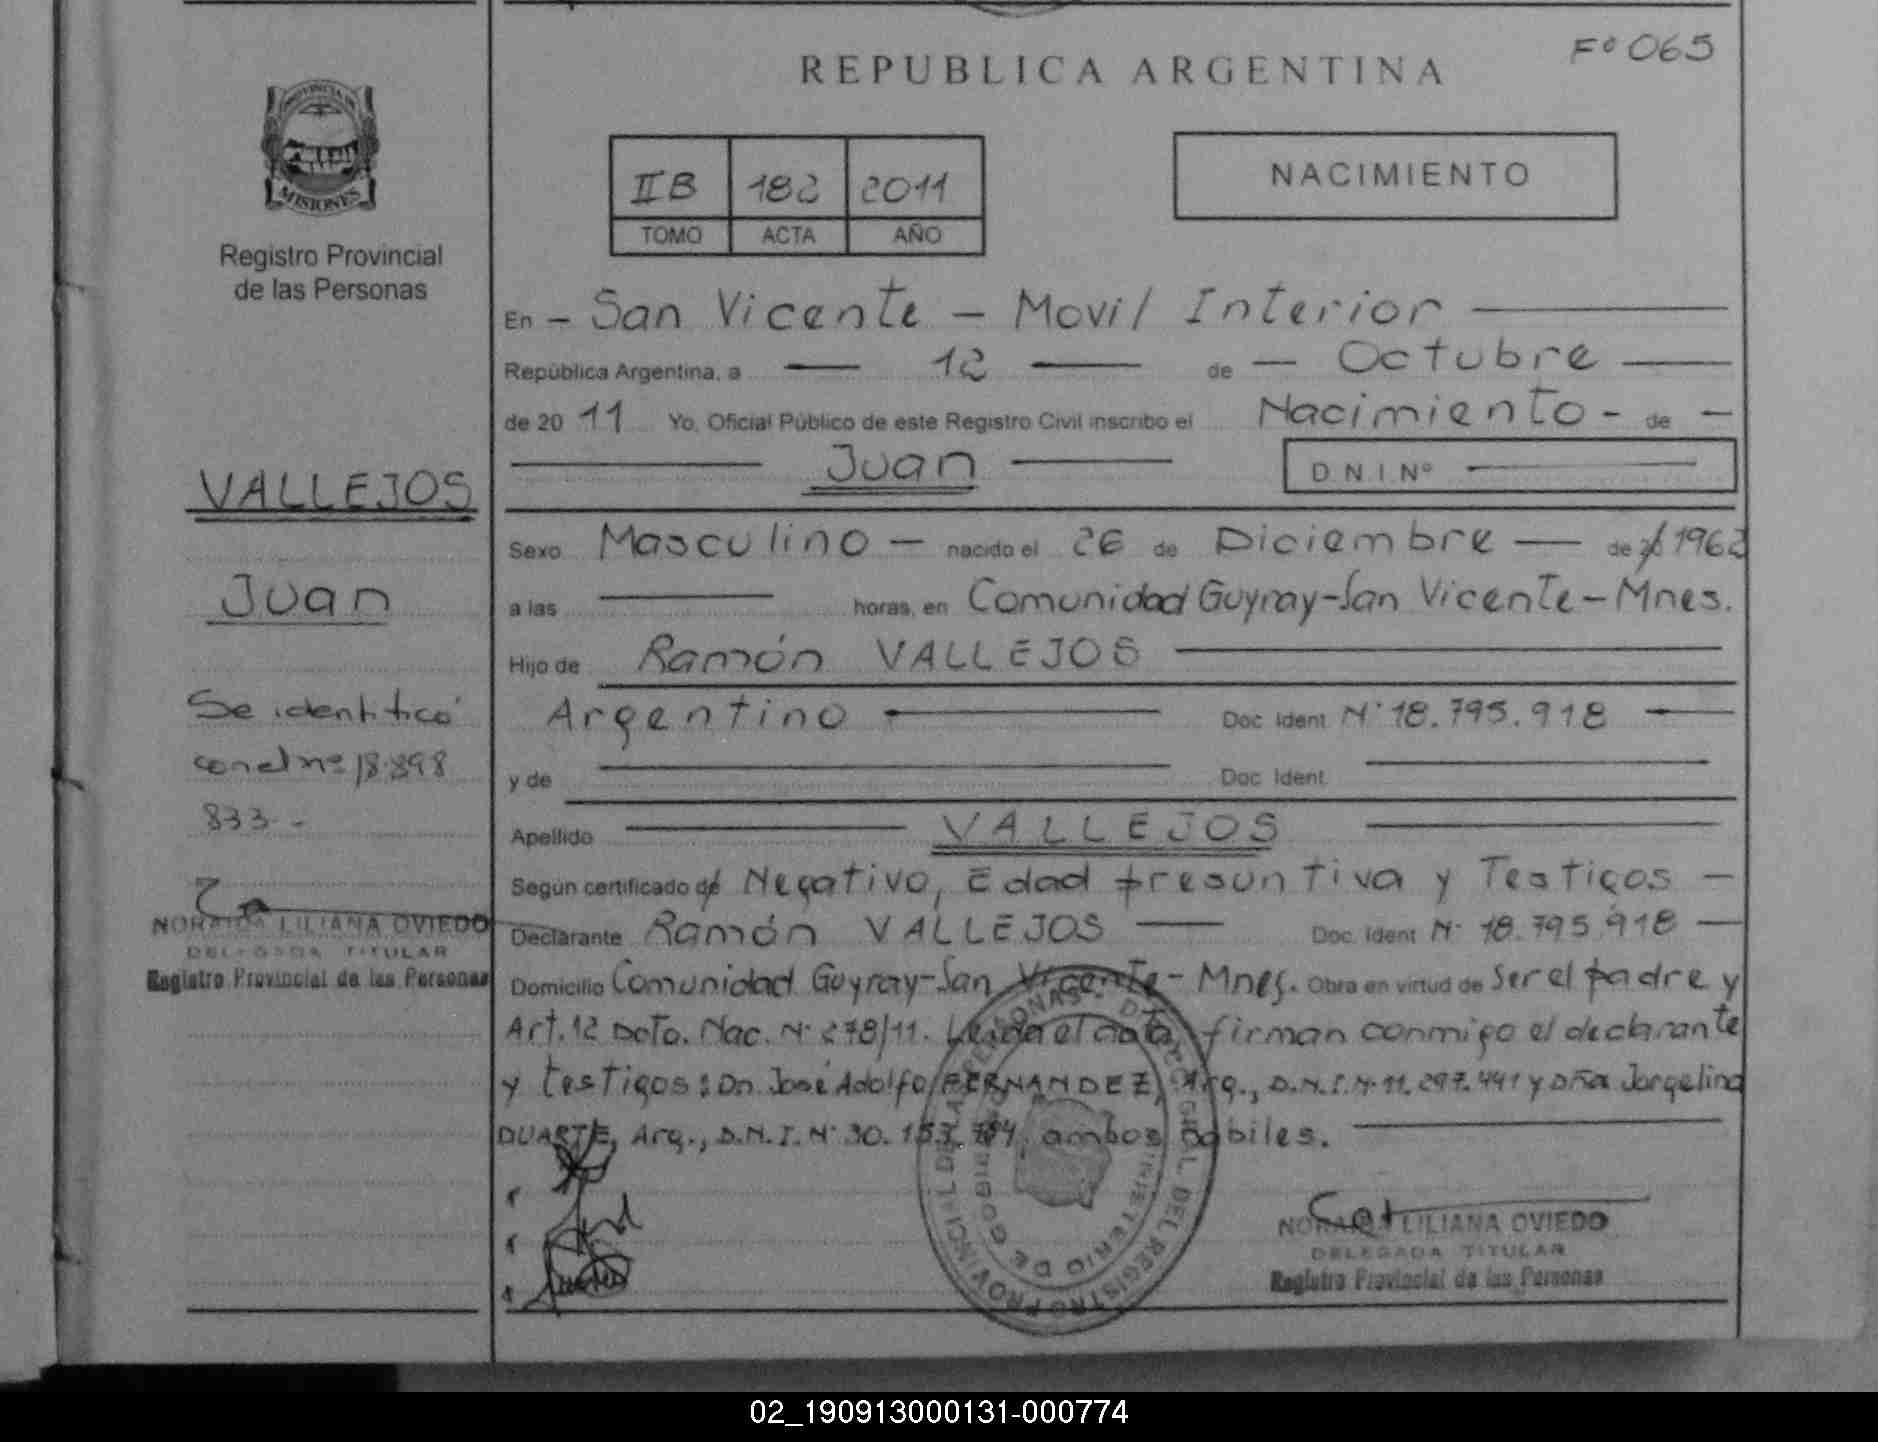 Fº 065
REPUBLICA ARGENTINA
PROVINCIA DE
MISIONES
Registro Provincial
de las Personas
II B 182 2011
TOMO ACTA AÑO
NACIMIENTO
En – San Vicente – Movil Interior
República Argentina, a 12 de – Octubre
de 20 11 Yo, Oficial Público de este Registro Civil inscribo el Nacimiento - de –
Juan D.N.I. Nº
VALLEJOS
Juan
Se identificó
con el nº 18.898
833 -
NORAIDA LILIANA OVIEDO
DELEGADA TITULAR
Registro Provincial de las Personas
Sexo Masculino – nacido el 26 de Diciembre – de 1962
a las horas, en Comunidad Guyray-San Vicente-Mnes.
Hijo de Ramón VALLEJOS
Argentino Doc. Ident. Nº 18.795.918
y de Doc. Ident.
Apellido VALLEJOS
Según certificado de Negativo, Edad presuntiva y Testigos –
Declarante Ramón VALLEJOS Doc. Ident. Nº 18.795.918 –
Domicilio Comunidad Guyray-San Vicente-Mnes. Obra en virtud de Ser el padre y
Art. 12 Dcto. Nac. Nº 278/11. Leida el acta, firman conmigo el declarante
y testigos: Dn. José Adolfo FERNANDEZ, Arg., D.N.I. Nº 11.297.441 y Dña Jorgelina
DUARTE, Arg., D.N.I. Nº 30. ambos habiles.
NORAIDA LILIANA OVIEDO
DELEGADA TITULAR
Registro Provincial de las Personas
DEL REGISTRO PROVINCIAL DE LAS PERSONAS
MINISTERIO DE GOBIERNO
02_190913000131-000774